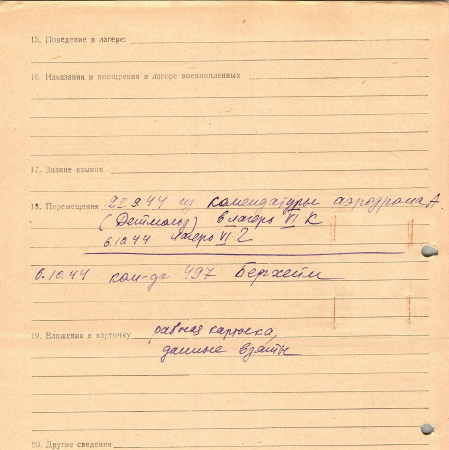 15. Поведение в лагере:
16. Наказания и поощрения в лагере военнопленных
17. Знание языков
18. Перемещения 22.9.44 из комендатуры аэродрома А.
(Детмольд) в лагерь VI К
6.10.44 лагерь VI G
6.10.44 ком-да 497 Берхейм
19. Вложения в карточку рабочая карточка,
данные взяты
20. Другие сведения